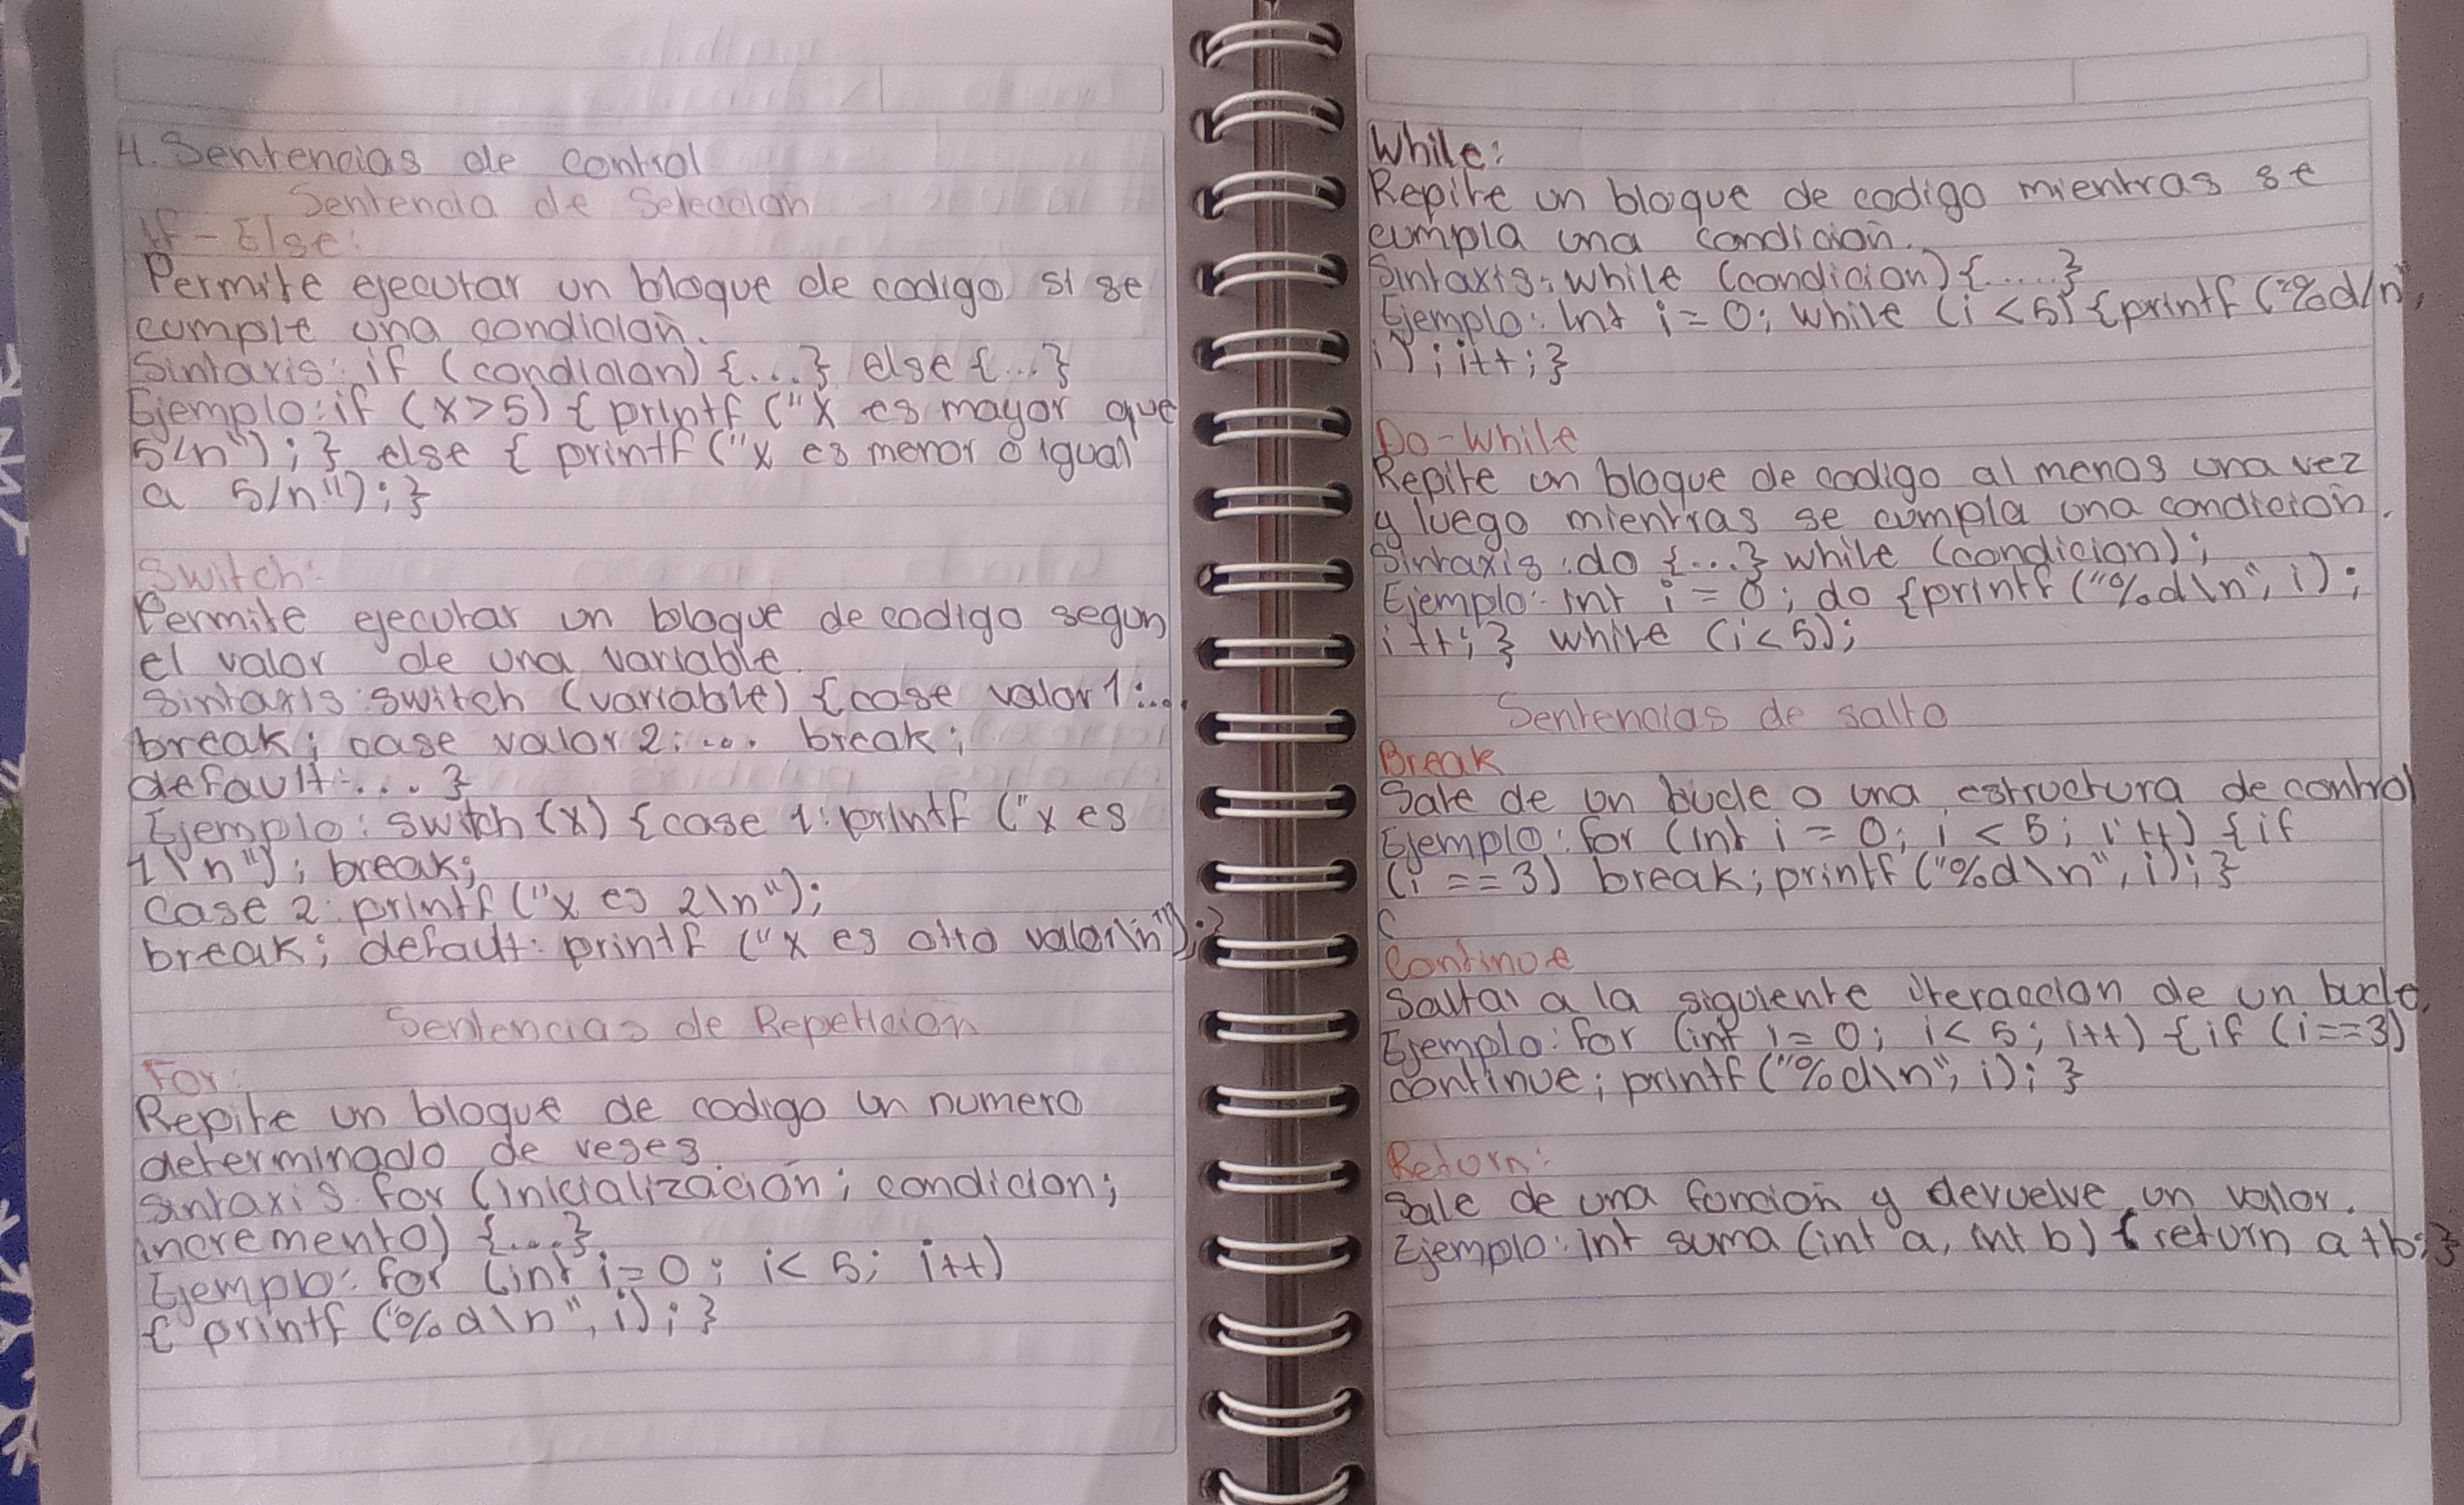 4. Sentencias de control
Sentencia de Selección
If - Else:
Permite ejecutar un bloque de codigo si se
cumple una condición.
Sintaxis: if (condicion) {...} else {...}
Ejemplo: if (x>5) { printf ("X es mayor que
5/n"); } else { printf ("x es menor o igual
a 5/n"); }
Switch:
Permite ejecutar un bloque de codigo segun
el valor de una variable.
Sintaxis: switch (variable) {case valor 1:....
break; case valor 2:... break;
default:... }
Ejemplo: switch (x) {case 1: printf ("x es
1\n"); break;
Case 2: printf ("x es 2\n");
break; default: printf ("x es otro valor\n"); }
Sentencias de Repetición
For:
Repite un bloque de codigo un numero
determinado de veses.
Sintaxis: for (inicialización; condicion;
incremento) {...}
Ejemplo: for (int i=0; i< 5; i++)
{ printf ("%d\n", i); }
While:
Repite un bloque de codigo mientras se
cumpla una condición.
Sintaxis: while (condicion) {.....}
Ejemplo: Int i = 0; while (i <5) {printf ("%d/n",
i); i++; }
Do-While
Repite un bloque de codigo al menos una vez
y luego mientras se cumpla una condición.
Sintaxis: do {...} while (condicion);
Ejemplo: int i = 0; do {printf ("%d\n", i);
i ++; } while (i<5);
Sentencias de salto
Break
Sale de un bucle o una estructura de control
Ejemplo: for (int i = 0; i < 5; i++) {if
(i == 3) break; printf ("%d\n", i); }
C
Continue
Saltar a la siguiente iteraccion de un bucle.
Ejemplo: for (int i= 0; i< 5; i++) {if (i==3)
continue; printf ("%d\n", i); }
Return:
Sale de una función y devuelve un valor.
Ejemplo: int suma (int a, int b) { return a +b; }